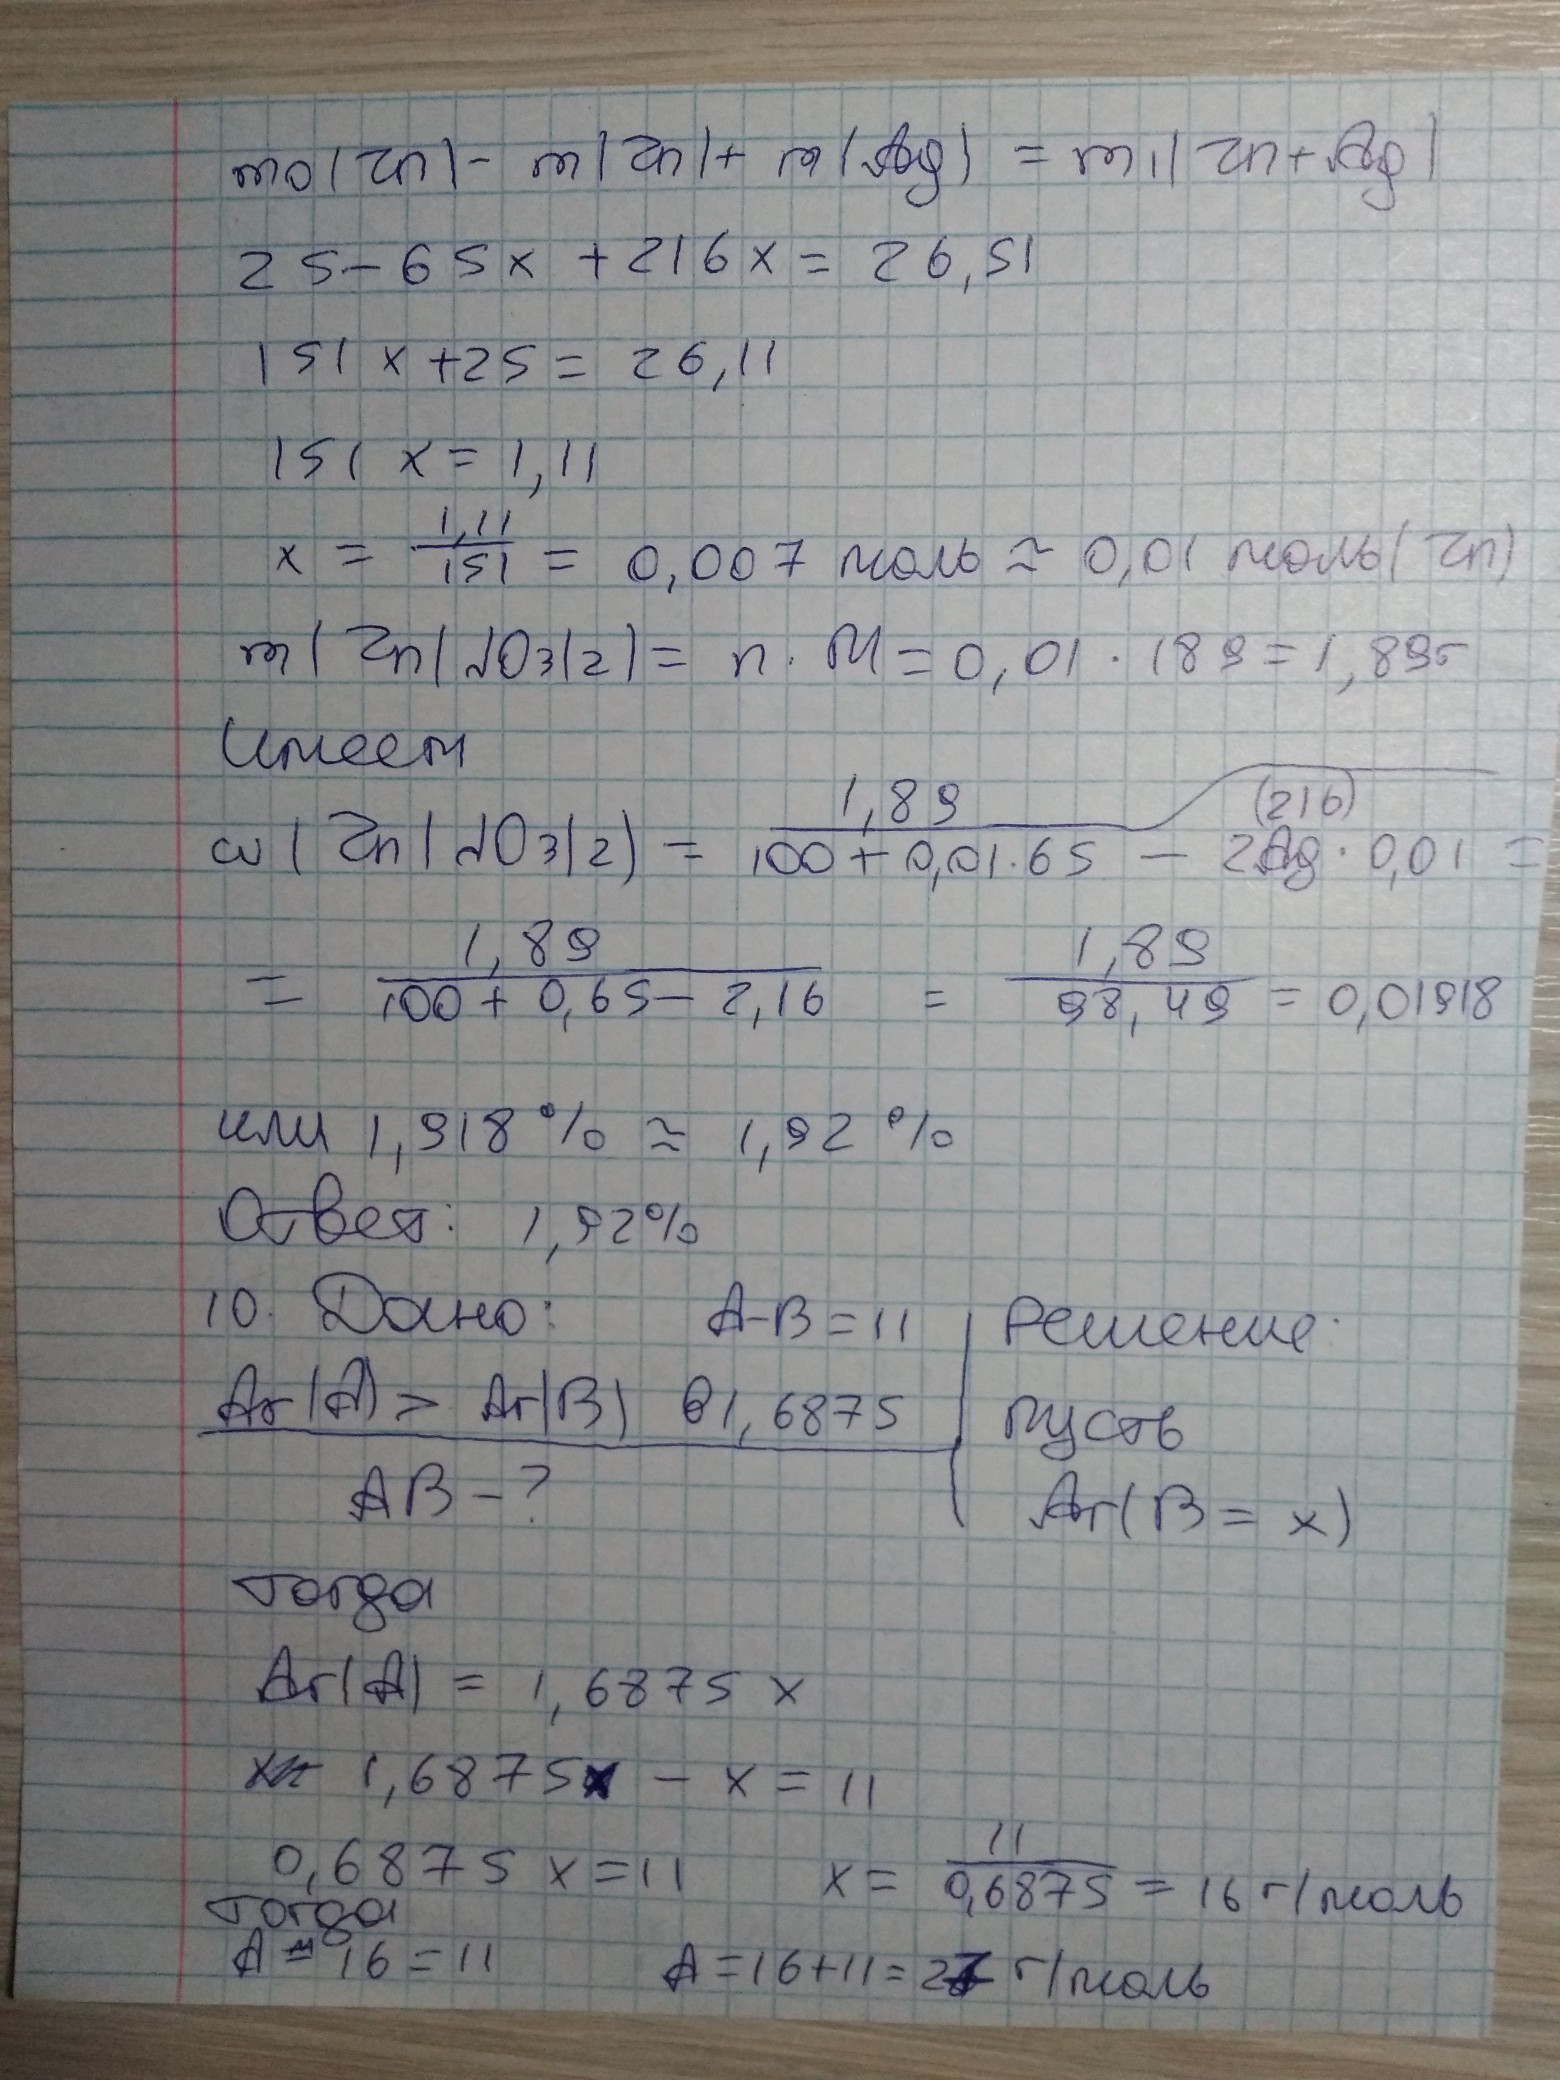 m0(Zn)- m(Zn)+ m(Ag) = m1(Zn+Ag)
25-65x +216x= 26,51
151x+25= 26,11
151x=1,11
x = 1,11/151 = 0,007 моль ≈ 0,01 моль(Zn)
m(Zn(NO3)2)= n·M=0,01·189=1,89г
Имеем
ω(Zn(NO3)2) = 1,89/(100+0,01·65 - 2Ag·0,01) = (216)
= 1,89/(100+0,65-2,16) = 1,89/98,49 = 0,01918
или 1,918% ≈ 1,92%
Ответ: 1,92%
10. Дано: A-B=11 Решение:
Ar(A)> Ar(B) в1,6875 Пусть
AB-? Ar(B= x)
Тогда
Ar(A) = 1,6875x
1,6875x - x = 11
0,6875x=11 x= 11/0,6875 = 16 г/моль
Тогда
A-16=11 A=16+11=27 г/моль